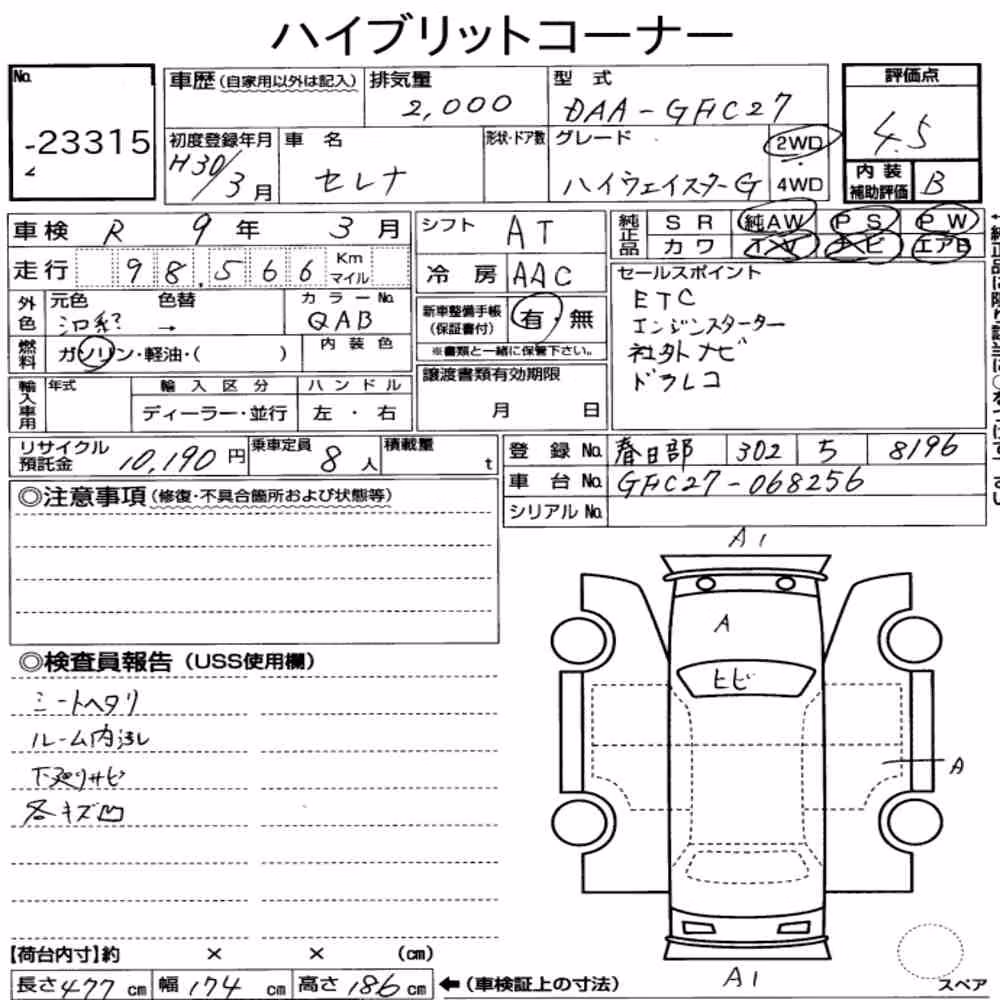 ハイブリットコーナー
No. -23315
車歴(自家用以外は記入)
排気量 2,000
型式 DAA-GFC27
評価点 4.5
初度登録年月 H30/3月
車名 セレナ
形状・ドア数
グレード ハイウェイスターG
2WD・4WD
内装補助評価 B
車検 R 9年 3月
シフト AT
純正品 SR 純AW PS PW
カワ TV ナビ エアB
走行 98,566 Km マイル
冷房 AAC
セールスポイント
ETC
エンジンスターター
社外ナビ
ドラレコ
外色 元色 色替 カラーNo.
→ QAB
新車整備手帳(保証書付) 有・無
※書類と一緒に保管下さい。
燃料 ガソリン・軽油・( )
内装色
譲渡書類有効期限
月 日
輸入車用 年式 輸入区分 ハンドル
ディーラー・並行 左・右
リサイクル預託金 10,190円
乗車定員 8人
積載量 t
登録No. 春日部 302 ち 8196
車台No. GFC27-068256
シリアルNo.
◎注意事項(修復・不具合箇所および状態等)
A1
A
ヒビ
A
A1
スペア
◎検査員報告(USS使用欄)
シートヘタリ
ルーム内汚レ
下廻りサビ
各キズ凹
【荷台内寸】約 × × (cm)
長さ477cm 幅174cm 高さ186cm ←(車検証上の寸法)